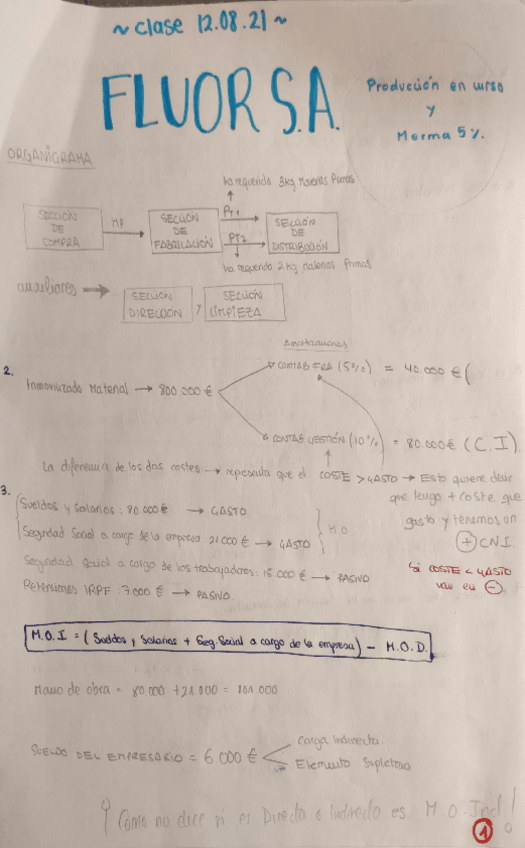 ~ clase 12.08.21 ~
FLUOR S.A.
Producción en curso
y
Merma 5%.
ORGANIGRAMA
ha requerido 3kg Materias Primas
SECCIÓN DE COMPRA
MP
SECCIÓN DE FABRICACIÓN
PT1
PT2
SECCIÓN DE DISTRIBUCIÓN
ha requerido 2 kg Materias Primas
auxiliares
SECCIÓN DIRECCIÓN
y
SECCIÓN LIMPIEZA
Amortizaciones
2.
Inmovilizado Material → 800.000 €
CONTAB FRA (5%) = 40.000 € (
CONTAB GESTIÓN (10%) = 80.000€ (C.I)
La diferencia de los dos costes → representa que el COSTE > GASTO → Esto quiere decir
que tengo + coste que
gasto y tenemos un
+ CNI.
Si COSTE < GASTO
van en -.
3.
Sueldos y Salarios: 80.000 € → GASTO
Seguridad Social a cargo de la empresa 21.000 € → GASTO
M.O
Seguridad Social a cargo de los trabajadores: 15.000 € → PASIVO
Retenciones IRPF: 7.000 € → PASIVO.
M.O.I = (Sueldos y Salarios + Seg. Social a cargo de la empresa) - M.O.D.
Mano de obra = 80 000 + 21 000 = 101 000
SUELDO DEL EMPRESARIO = 6 000 €
Carga Indirecta
Elemento Supletorio
Y Cómo no dice si es Directa o Indirecta es M.O.Ind!
1